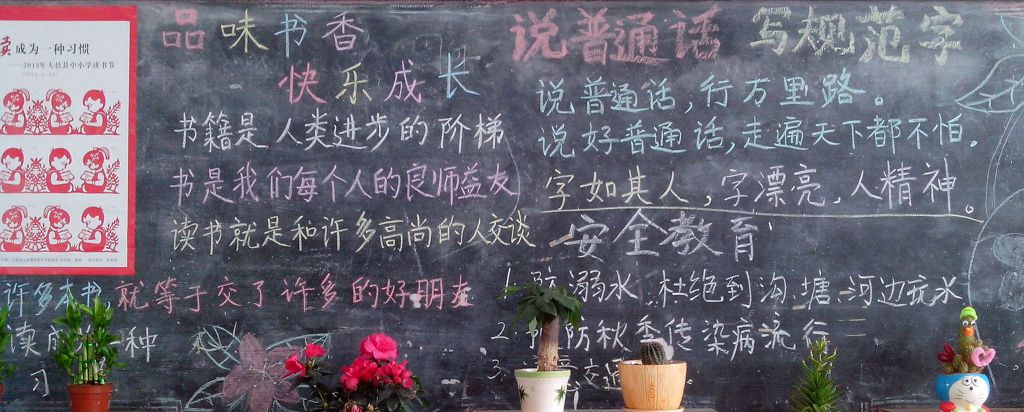 成为一种习惯
——2015年大邑县中小学读书节
品味书香
快乐成长
书籍是人类进步的阶梯
书是我们每个人的良师益友
读书就是和许多高尚的人交谈
许多本书,就等于交了许多的好朋友
读 一种
习
说普通话 写规范字
说普通话,行万里路。
说好普通话,走遍天下都不怕。
字如其人,字漂亮,人精神。
安全教育
1. 溺水 杜绝到沟、塘、河边玩水
2. 防秋季传染病流行
3. 交通